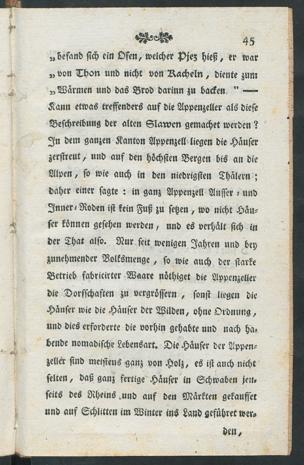 45
„befand sich ein Ofen, welcher Pjez hieß, er war
„von Thon und nicht von Kacheln, diente zum
„Wärmen und das Brod darinn zu backen. “ —
Kann etwas treffenders auf die Appenzeller als diese
Beschreibung der alten Slawen gemachet werden?
In dem ganzen Kanton Appenzell liegen die Häuser
zerstreut, und auf den höchsten Bergen bis an die
Alpen, so wie auch in den niedrigsten Thälern;
daher einer sagte: in ganz Appenzell Ausser- und
Inner-Roden ist kein Fuß zu setzen, wo nicht Häu-
ser können gesehen werden, und es verhält sich in
der That also. Nur seit wenigen Jahren und bey
zunehmender Volksmenge, so wie auch der starke
Betrieb fabricirter Waare nöthiget die Appenzeller
die Dorfschaften zu vergrössern, sonst liegen die
Häuser wie die Häuser der Wilden, ohne Ordnung,
und dies erforderte die vorhin gehabte und nach ha-
bende nomadische Lebensart. Die Häuser der Appen-
zeller sind meistens ganz von Holz, es ist auch nicht
selten, daß ganz fertige Häuser in Schwaben jen-
seits des Rheins und auf den Märkten gekauffet
und auf Schlitten im Winter ins Land geführet wer-
den,